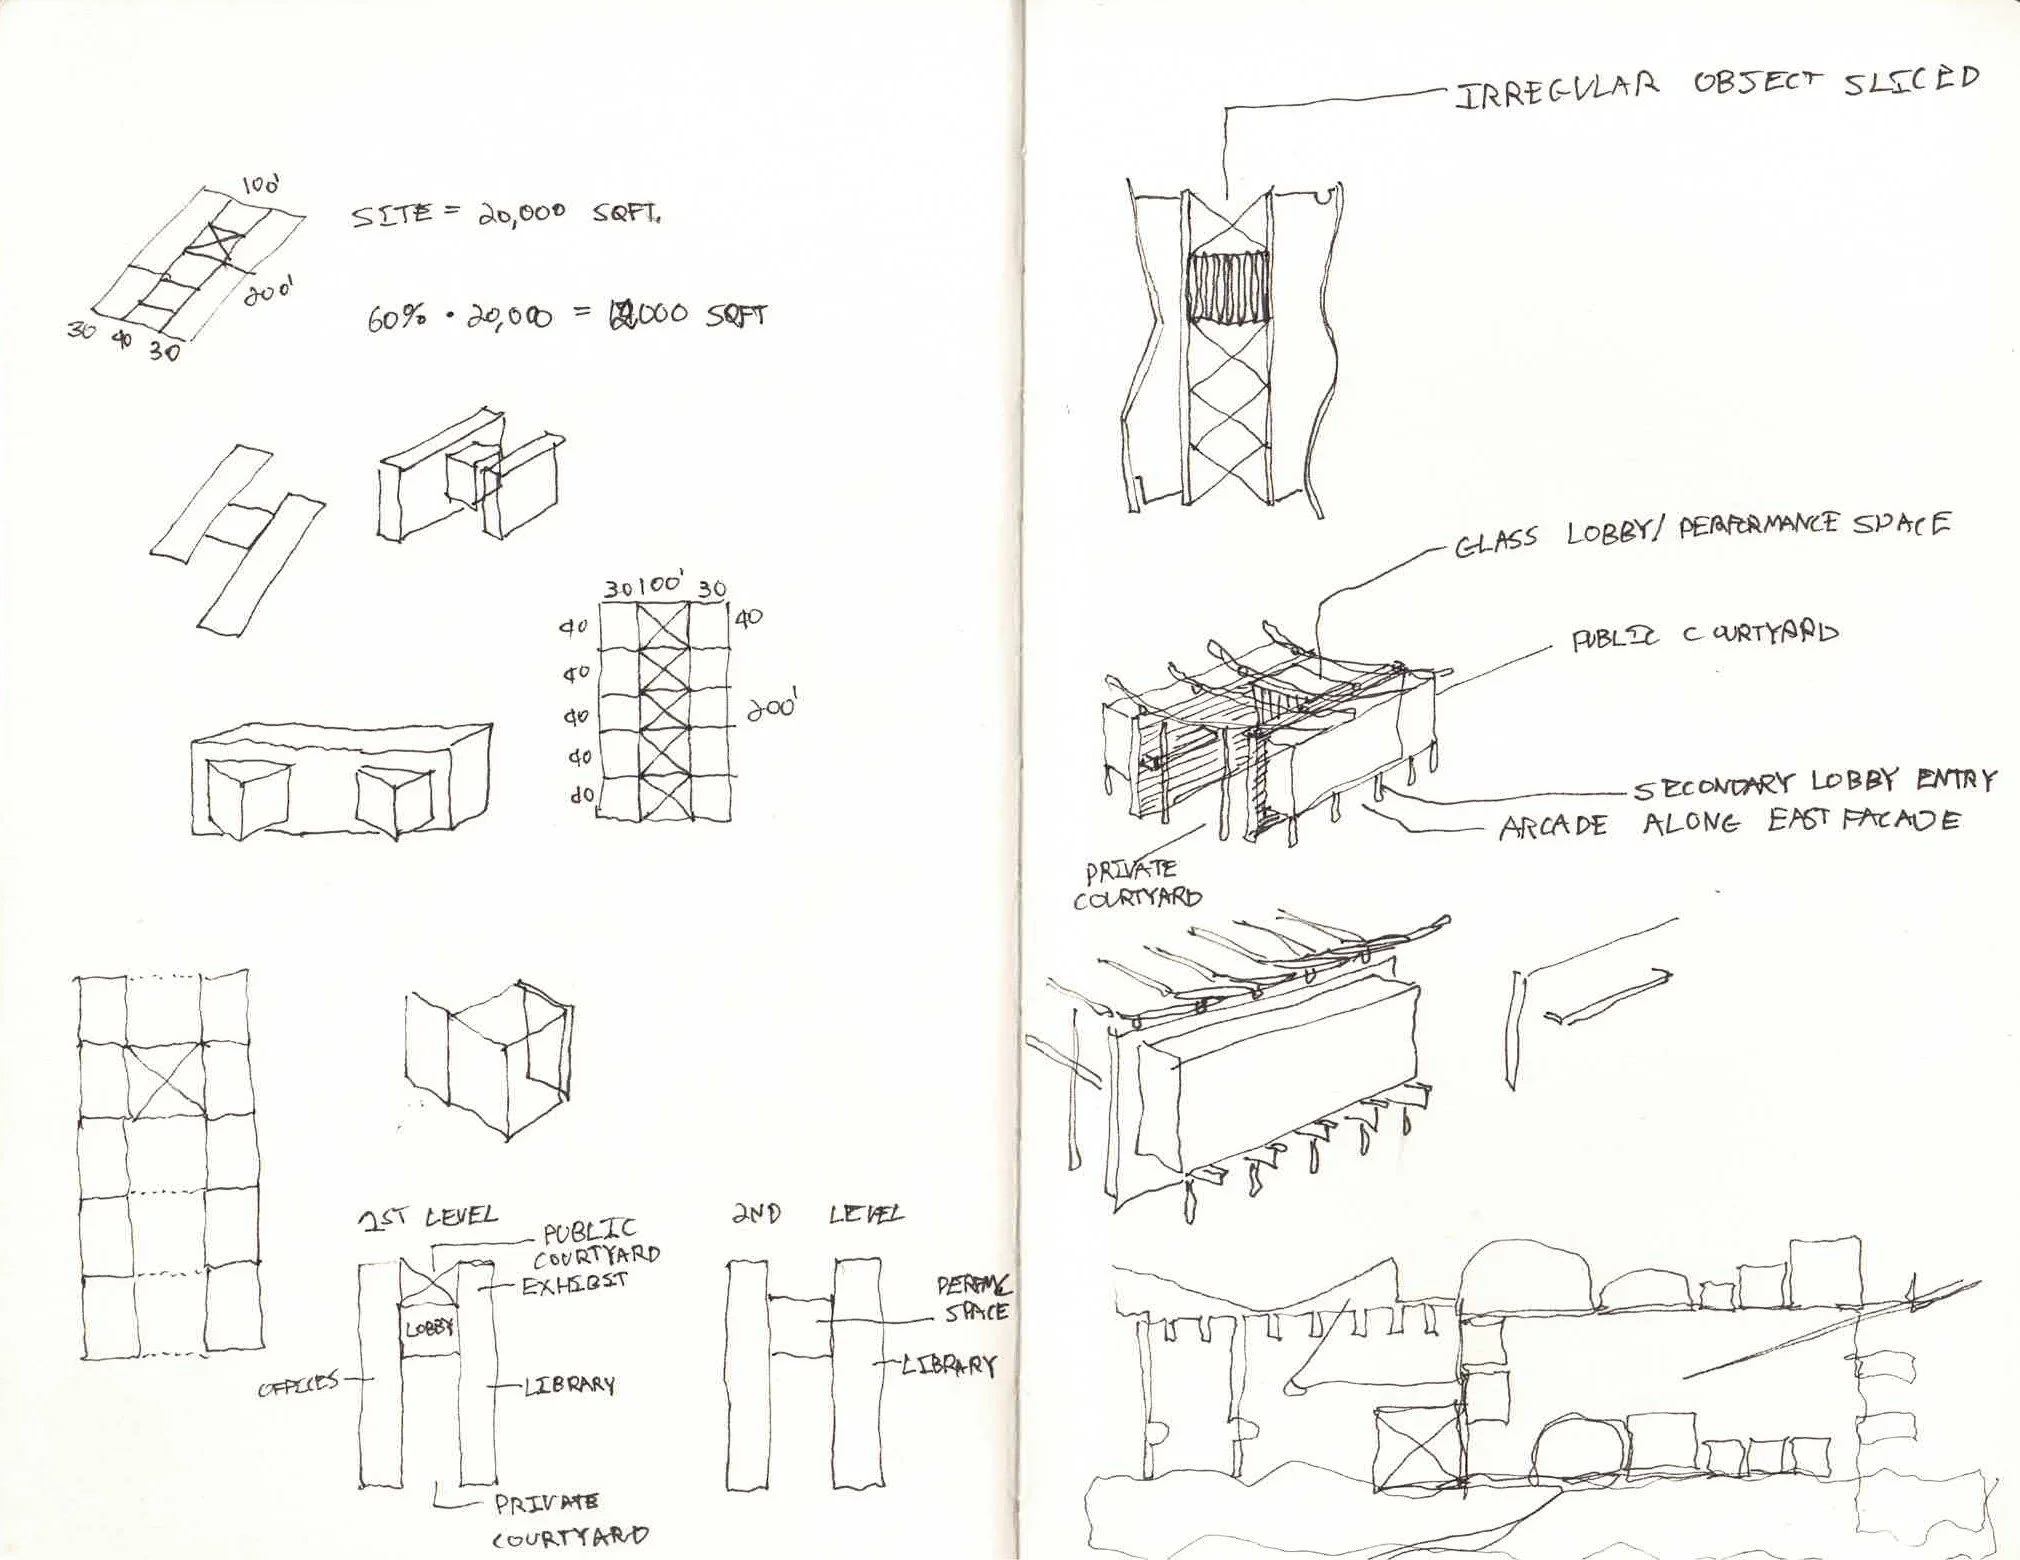 100'
SITE = 20,000 SQFT.
200'
60% · 20,000 = 12000 SQFT
30 40 30
30 100' 30
40 40
40
40 200'
40
40
1ST LEVEL
PUBLIC
COURTYARD
EXHIBIT
LOBBY
OFFICES
LIBRARY
PRIVATE
COURTYARD
2ND LEVEL
SPACE
LIBRARY
IRREGULAR OBJECT SLICED
GLASS LOBBY/PERFORMANCE SPACE
PUBLIC COURTYARD
SECONDARY LOBBY ENTRY
ARCADE ALONG EAST FACADE
PRIVATE
COURTYARD